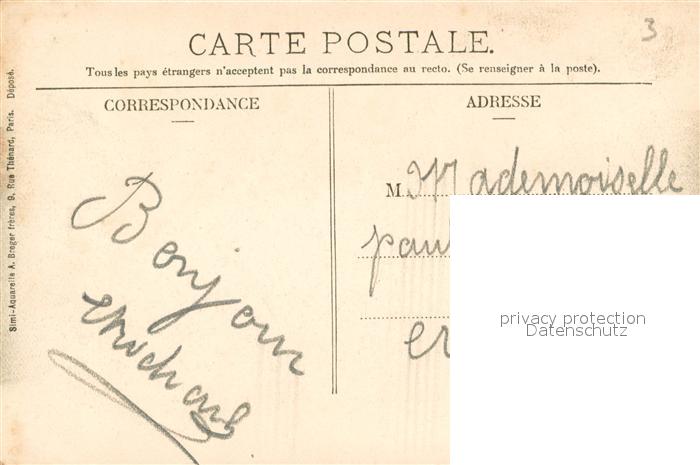 3
CARTE POSTALE.
Tous les pays étrangers n'acceptent pas la correspondance au recto. (Se renseigner à la poste).
CORRESPONDANCE
ADRESSE
Simi-Aquarelle A. Breger frères, 9, Rue Thénard, Paris. Déposé.
Bonjour
M. Mademoiselle
privacy protection
Datenschutz